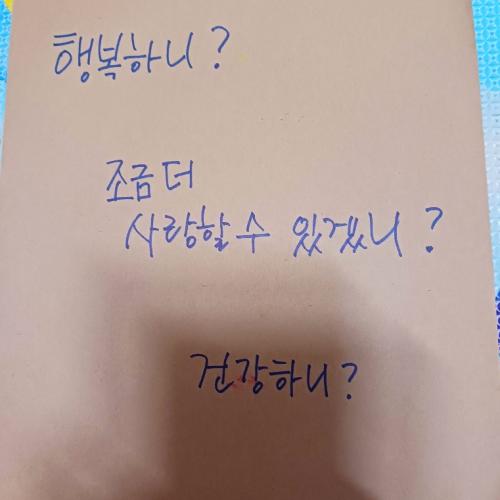 행복하니?
조금 더
사랑할 수 있겠니?
건강하니?